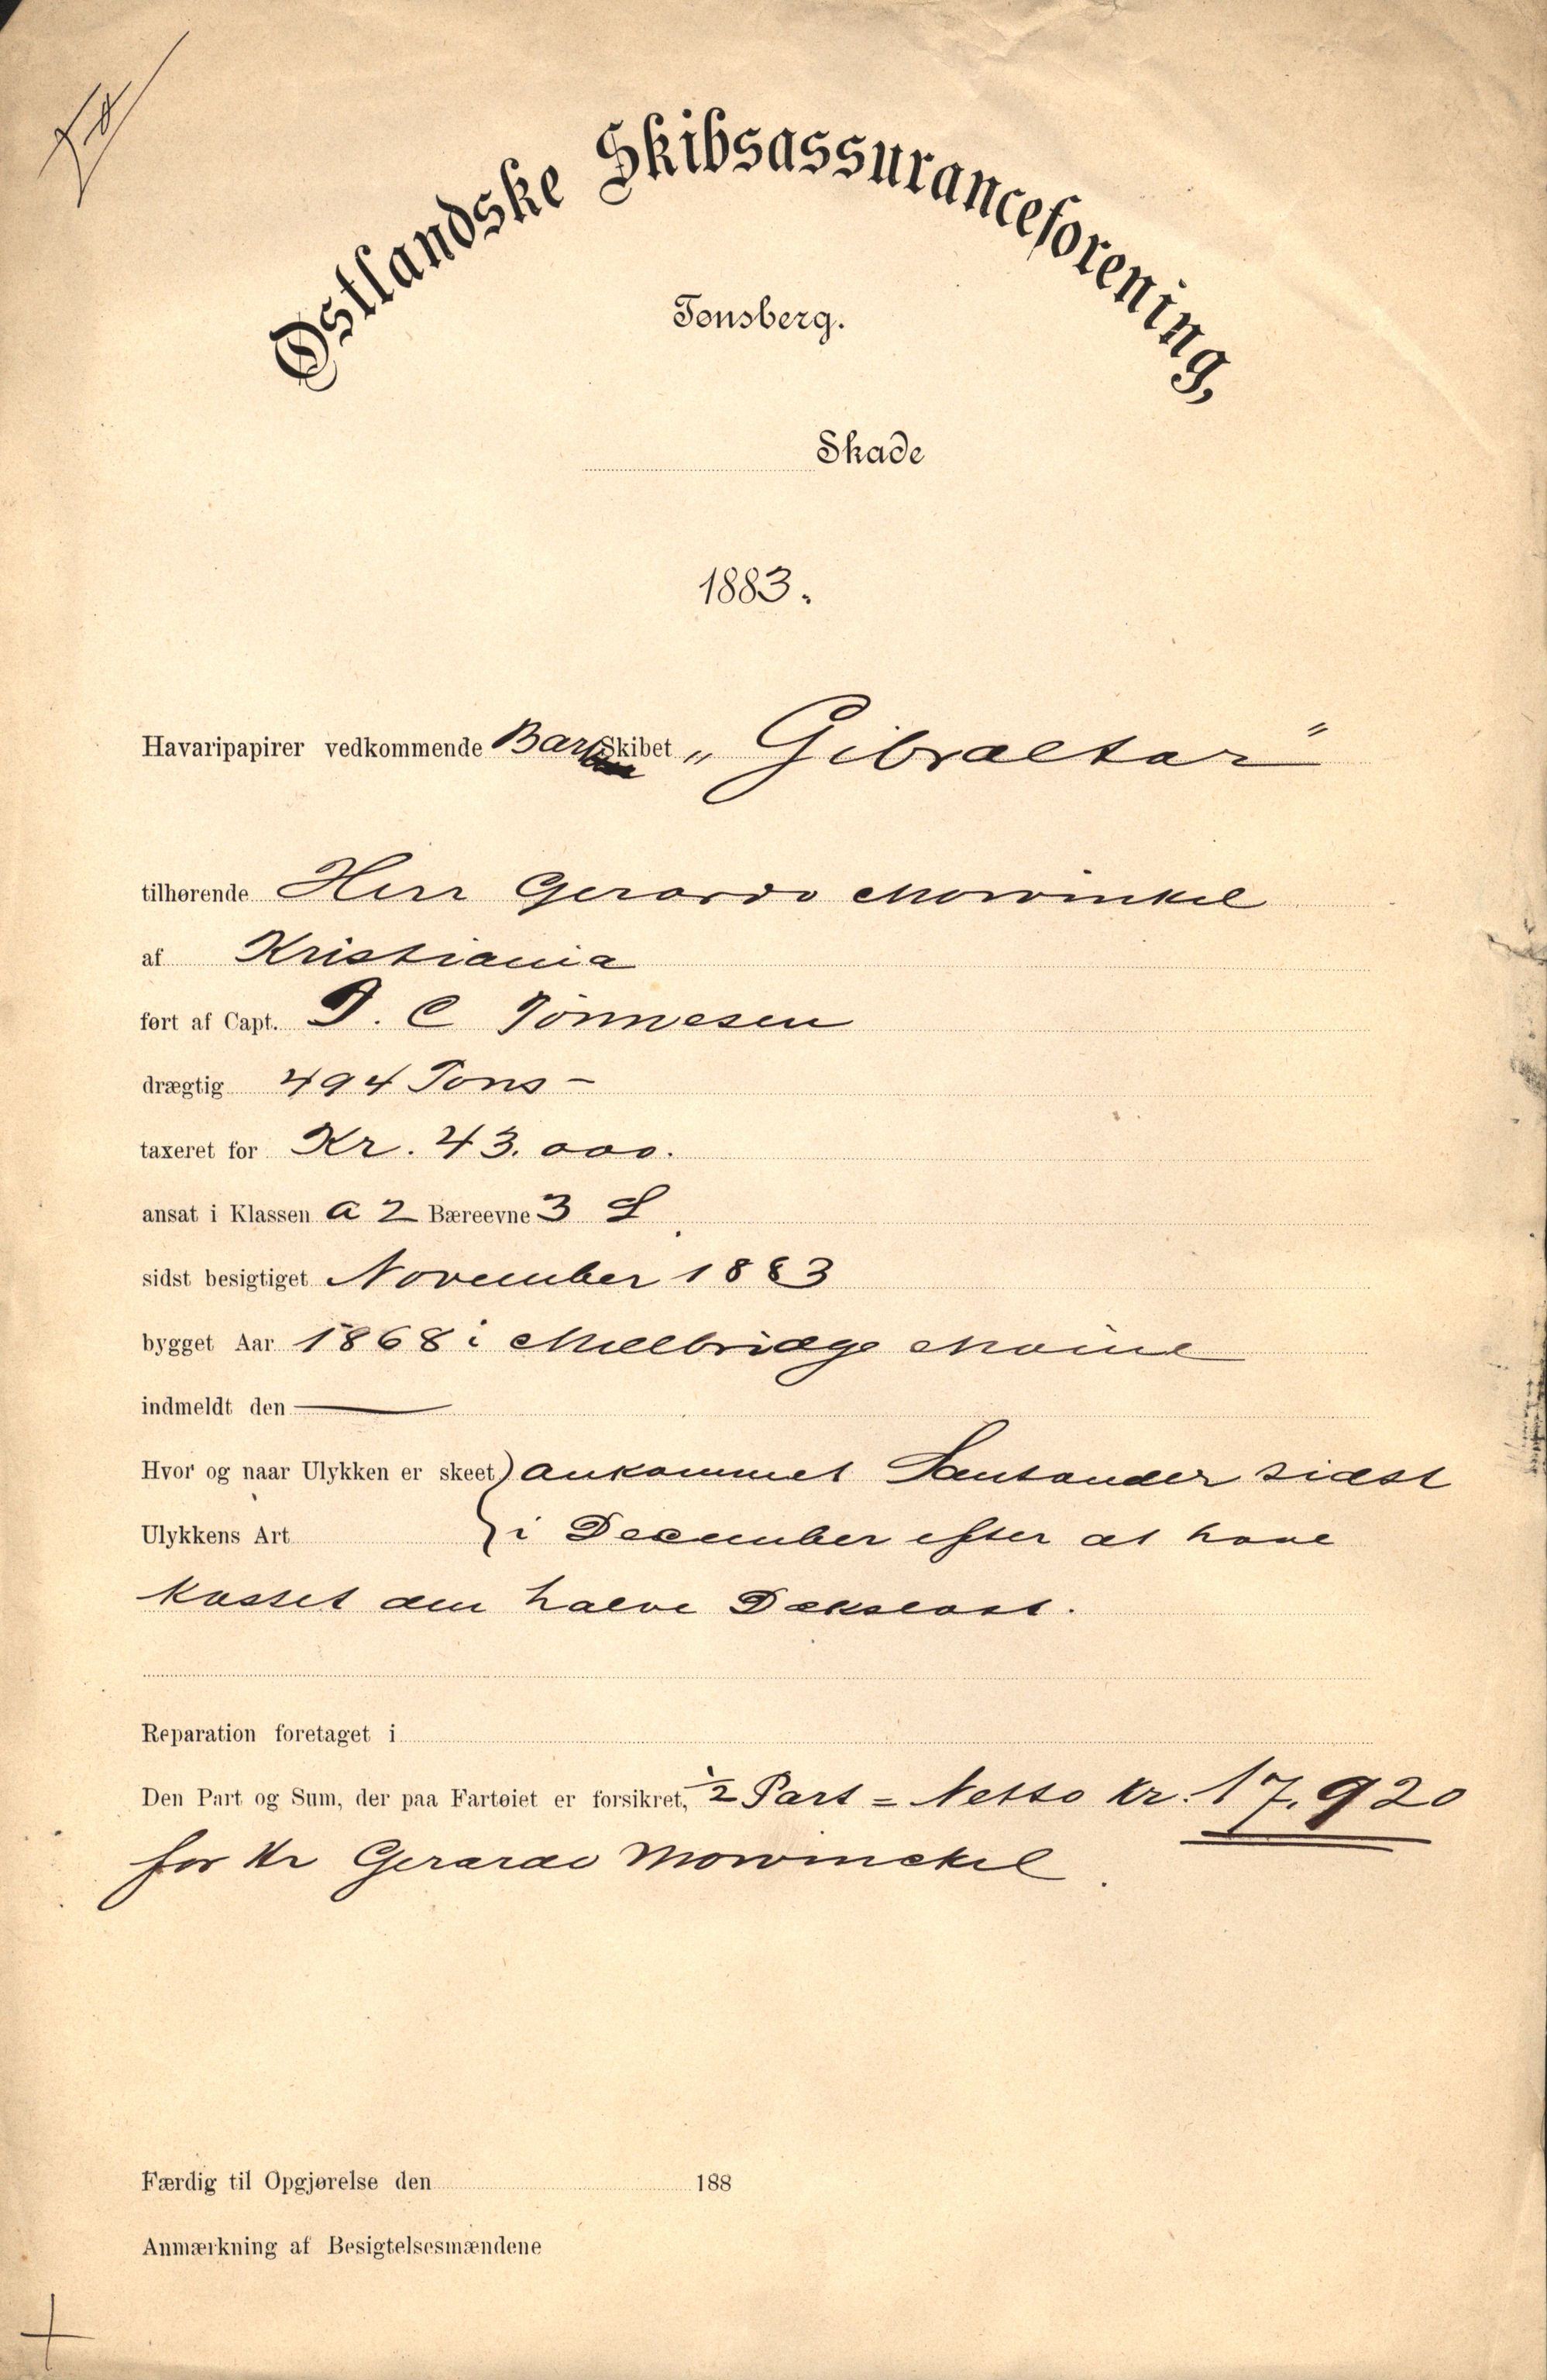 Østlandske Skibsassuranceforening,
Tønsberg.
Skade
1883.
Havaripapirer vedkommende Bark Skibet „ Gibraltar "
tilhørende Herr Gerardo Mowinkel
af Kristiania
ført af Capt. T. C Tönnesen
drægtig 494 Tons -
taxeret for Kr. 43.000.
ansat i Klassen A 2 Bæreevne 3 L
sidst besigtiget November 1883
bygget Aar 1868 i Millbridge Maine
indmeldt den —
Hvor og naar Ulykken er skeet ankommet Santander sidst
Ulykkens Art i December efter at have
kastet den halve Dækslast.
Reparation foretaget i
Den Part og Sum, der paa Fartøiet er forsikret, ½ Part = Netto Kr. 17.920
for Hr Gerardo Mowinckel.
Færdig til Opgjørelse den 188
Anmærkning af Besigtelsesmændene